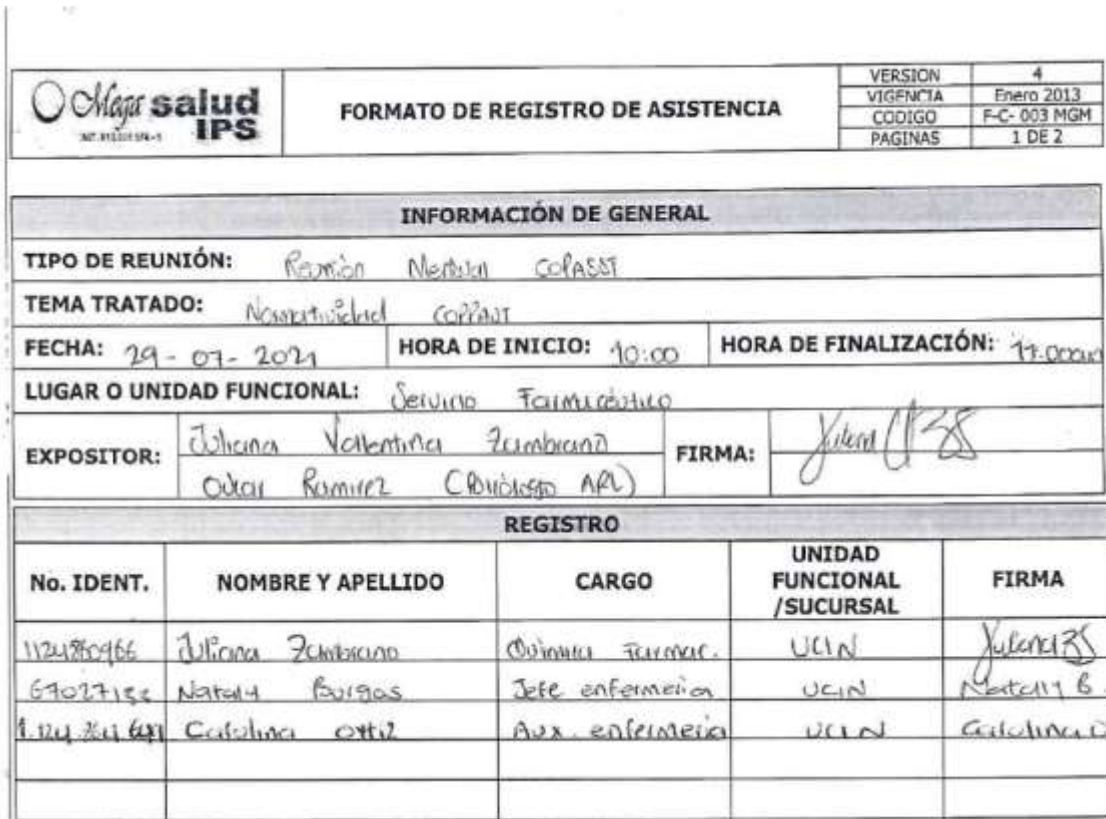 Mega salud
IPS
FORMATO DE REGISTRO DE ASISTENCIA
VERSION 4
VIGENCIA Enero 2013
CODIGO F-C- 003 MGM
PAGINAS 1 DE 2
INFORMACIÓN DE GENERAL
TIPO DE REUNIÓN: Reunión Mensual COPASST
TEMA TRATADO: Normatividad
FECHA: 29-07-2021 HORA DE INICIO: 10:00 HORA DE FINALIZACIÓN:
LUGAR O UNIDAD FUNCIONAL: Servicio Farmacéutico
EXPOSITOR: Juliana Valentina Zambrano FIRMA:
Ramirez ARL)
REGISTRO
No. IDENT. NOMBRE Y APELLIDO CARGO UNIDAD FUNCIONAL /SUCURSAL FIRMA
Juliana Zambrano Farmac. UCIN
Nataly Burgos Jefe enfermeria UCIN Nataly B.
Ortiz Aux. enfermeria UCIN